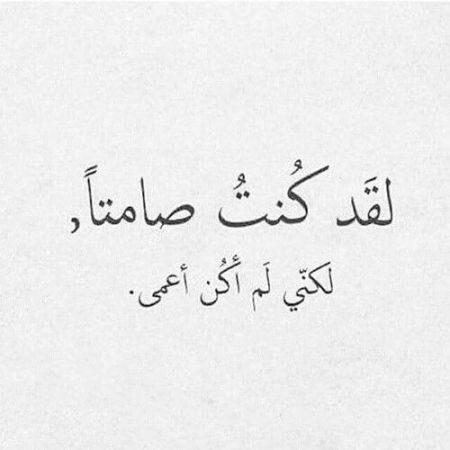 لقَد كُنتُ صامتاً,
لكنّي لَم أكُن أعمى.